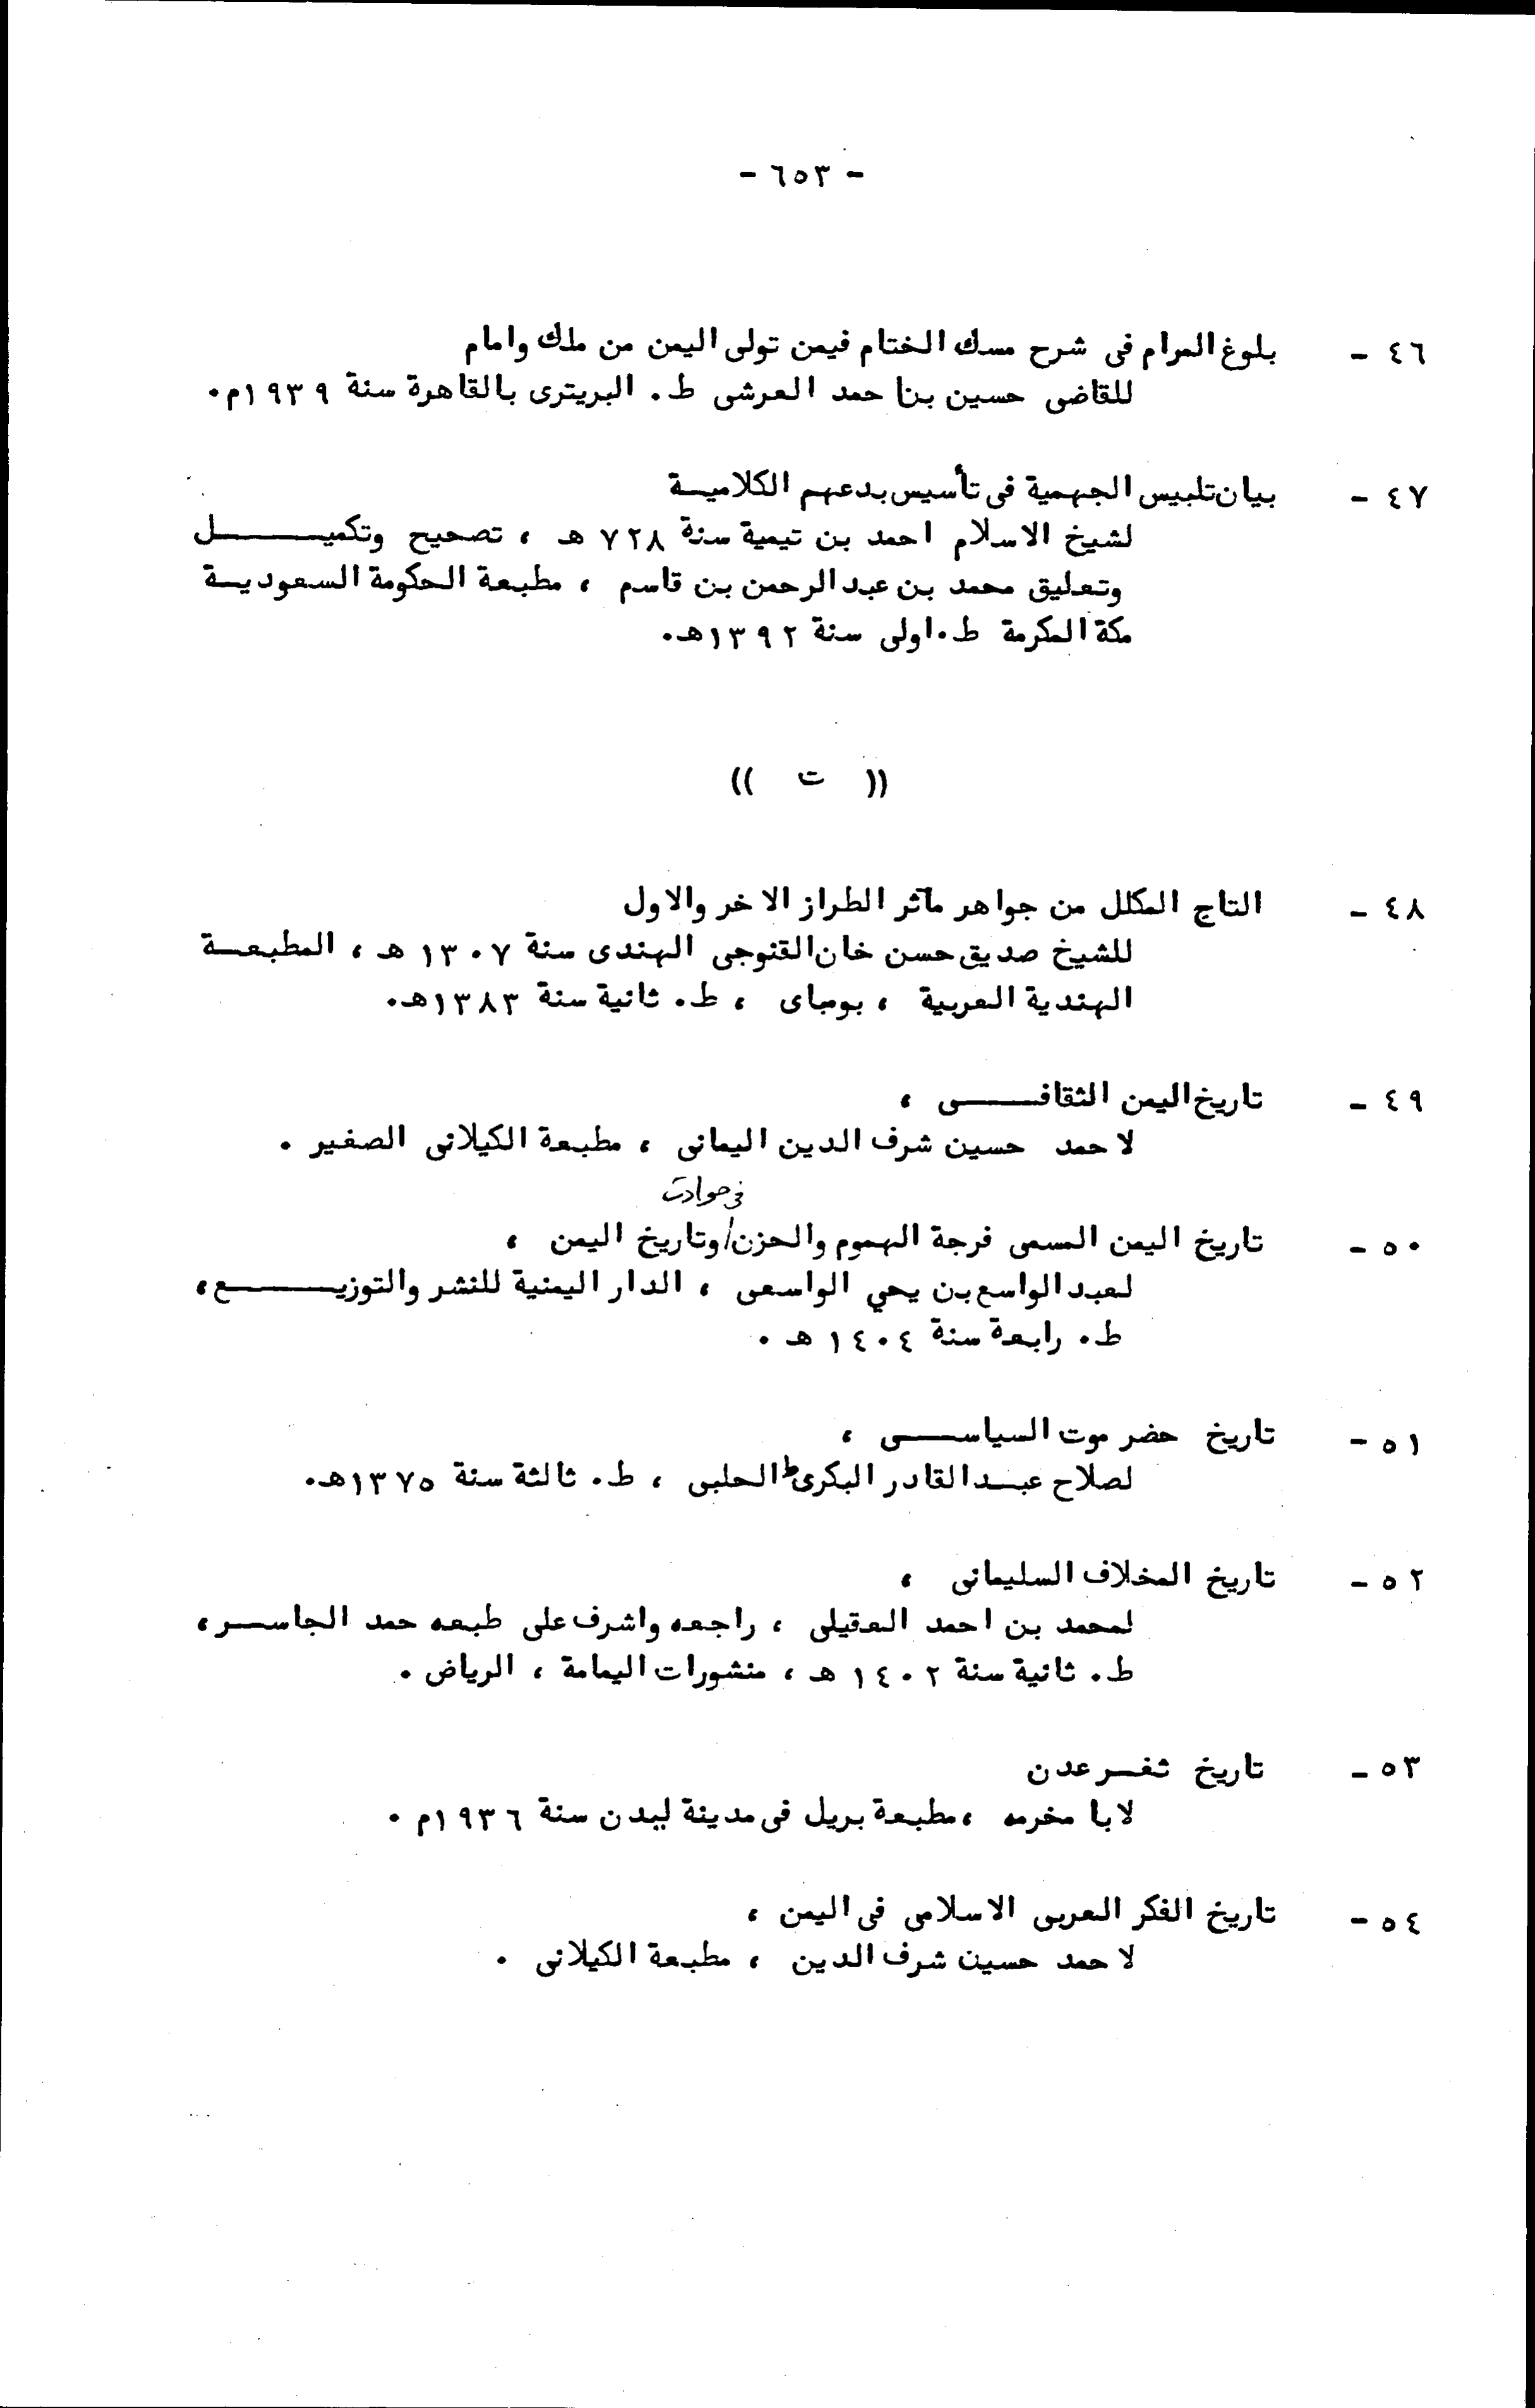 - ٦٥٣ -
٤٦ - بلوغ المرام فى شرح مسك الختام فيمن تولى اليمن من ملك وامام
للقاضى حسين بن احمد العرشى ط. البريترى بالقاهرة سنة ١٩٣٩م.
٤٧ - بيان تلبيس الجهمية فى تأسيس بدعهم الكلاميـة
لشيخ الاسلام احمد بن تيمية سنة ٧٢٨ هـ ، تصحيح وتكميـــــل
وتعليق محمد بن عبد الرحمن بن قاسم ، مطبعة الحكومة السعوديـة
مكة المكرمة ط. اولى سنة ١٣٩٢هـ.
(( ت ))
٤٨ - التاج المكلل من جواهر مآثر الطراز الاخر والاول
للشيخ صديق حسن خان القنوجى الهندى سنة ١٣٠٧ هـ ، المطبعـة
الهندية العربية ، بومباى ، ط. ثانية سنة ١٣٨٣هـ.
٤٩ - تاريخ اليمن الثقافــــى ،
لاحمد حسين شرف الدين اليمانى ، مطبعة الكيلانى الصغير .
فى حوادث
٥٠ - تاريخ اليمن المسمى فرجة الهموم والحزن/وتاريخ اليمن ،
لعبد الواسع بن يحي الواسعى ، الدار اليمنية للنشر والتوزيـــــع ،
ط. رابعة سنة ١٤٠٤ هـ .
٥١ - تاريخ حضر موت السياســـى ،
لصلاح عبـد القادر البكرى ط الحلبى ، ط. ثالثة سنة ١٣٧٥هـ.
٥٢ - تاريخ المخلاف السليمانى ،
لمحمد بن احمد العقيلى ، راجعه واشرف على طبعه حمد الجاســر ،
ط. ثانية سنة ١٤٠٢ هـ ، منشورات اليمامة ، الرياض .
٥٣ - تاريخ ثغـر عدن
لابا مخرمه ، مطبعة بريل فى مدينة ليدن سنة ١٩٣٦م .
٥٤ - تاريخ الفكر العربى الاسلامى فى اليمن ،
لاحمد حسين شرف الدين ، مطبعة الكيلانى .